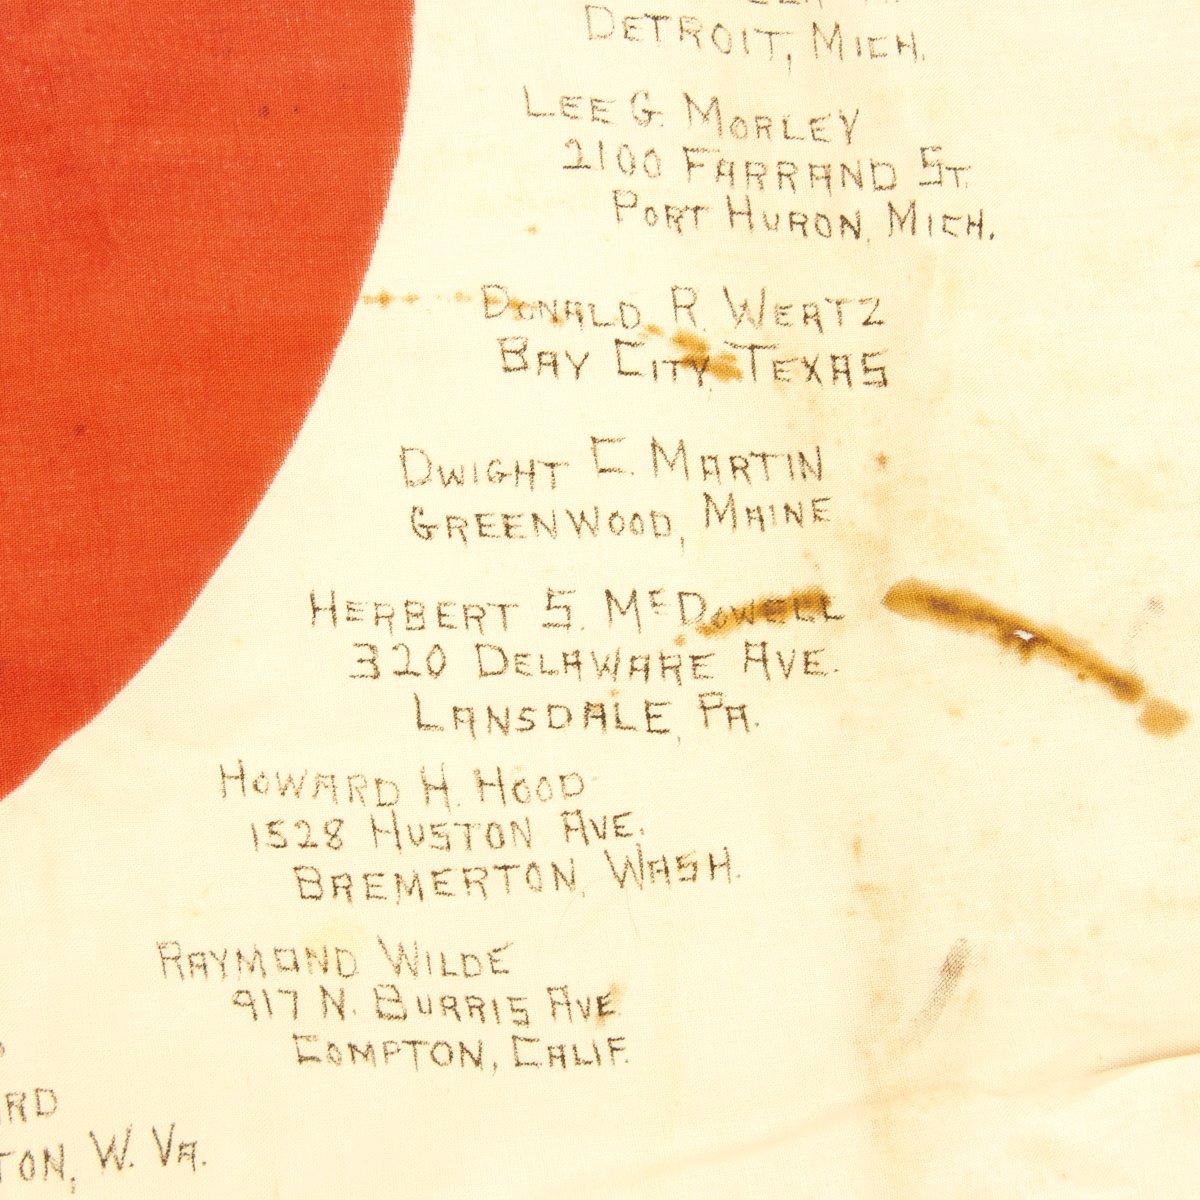 DETROIT, MICH.
LEE G. MORLEY
2100 FARRAND ST.
PORT HURON, MICH.
DONALD R. WERTZ
BAY CITY, TEXAS
DWIGHT C. MARTIN
GREENWOOD, MAINE
HERBERT S. McDOWELL
320 DELAWARE AVE.
LANSDALE, PA.
HOWARD H. HOOD
1528 HUSTON AVE.
BREMERTON, WASH.
RAYMOND WILDE
917 N. BURRIS AVE
COMPTON, CALIF.
RD
TON, W. VA.